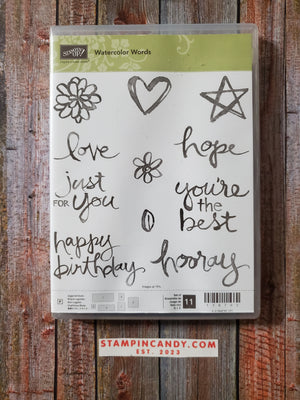 STAMPIN' UP!
Watercolor Words
love
hope
just
FOR you
you're
the
best
happy
birthday
hooray
11
STAMPINCANDY.COM
EST. 2023